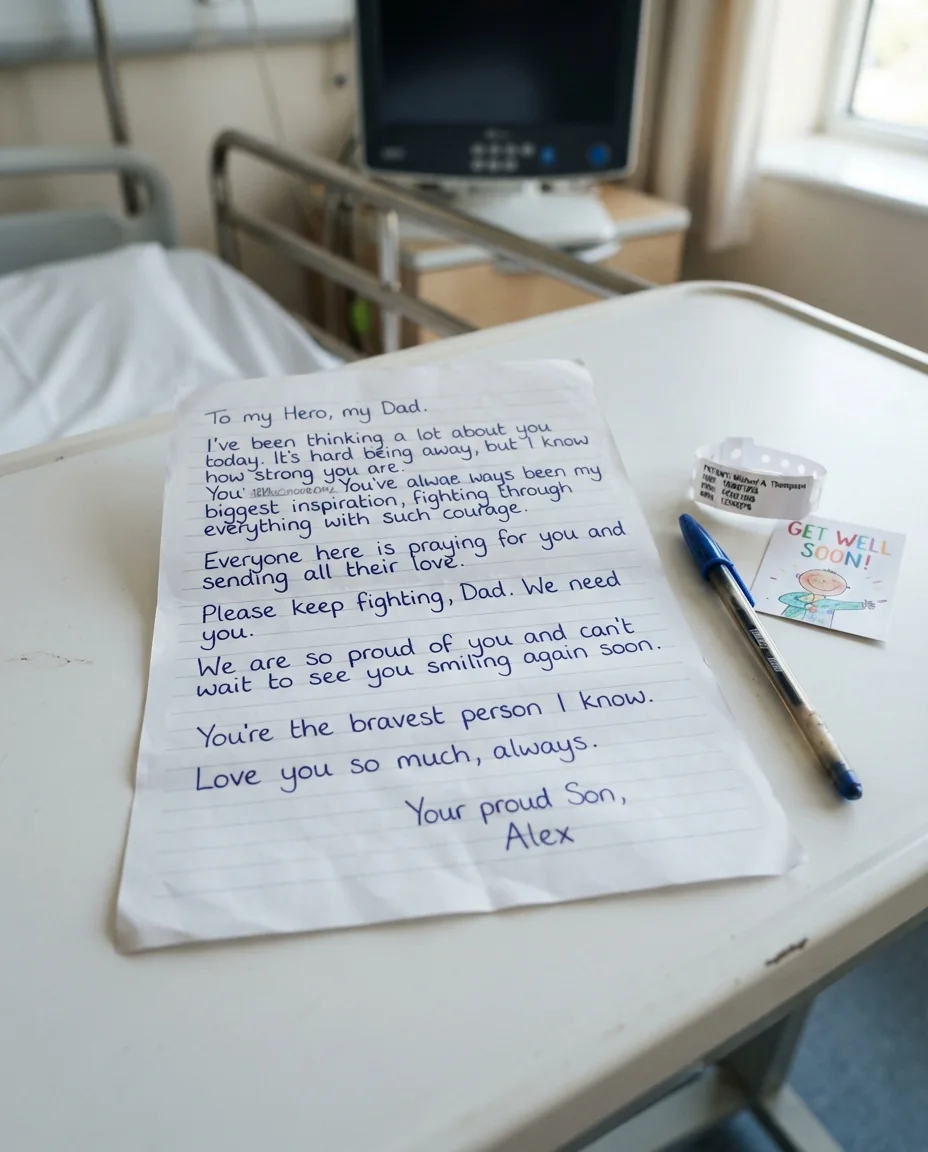 To my Hero, my Dad.
I've been thinking a lot about you
today. It's hard being away, but I know
how strong you are.
You' You've alwae ways been my
biggest inspiration, fighting through
everything with such courage.
Everyone here is praying for you and
sending all their love.
Please keep fighting, Dad. We need
you.
We are so proud of you and can't
wait to see you smiling again soon.
You're the bravest person I know.
Love you so much, always.
Your proud Son,
Alex
A Thompson
GET WELL
SOON!